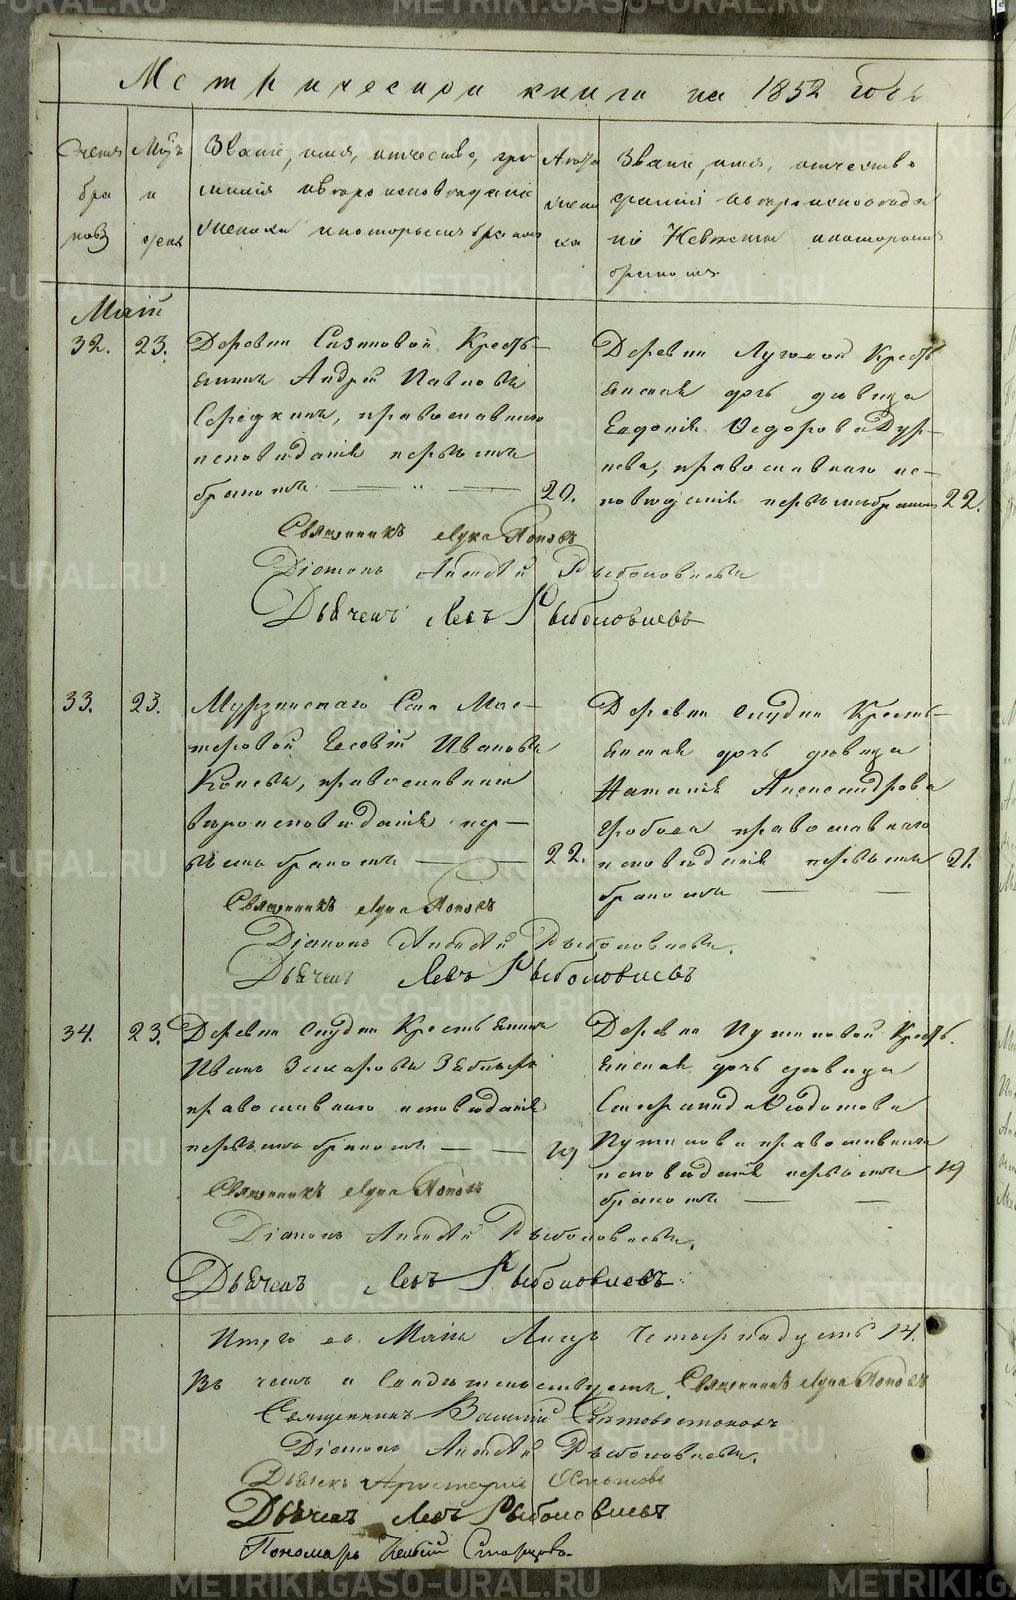 Метрическая книга на 1852 годъ
Счетъ браковъ
Мѣсяцъ и день
Званіе, имя, отчество, фамилія и вѣроисповѣданіе жениха и которымъ бракомъ
Лѣта жениха
Званіе, имя, отчество фамилія и вѣроисповѣданіе Невѣсты и которымъ бракомъ.
Маій
32. 23.
Деревни Сизиковой Кресть-
янинъ Андрей Павловъ
Середкинъ, православнаго
исповѣданія первымъ
бракомъ — " — 20.
Деревни Луговой Кресть
янская дочь дѣвица
Евдокія Ѳедорова Дур-
нева, православнаго ис-
повѣданія первымъ бракомъ 22.
Священникъ Лука Поповъ
Діаконъ Алексѣй Рыболовлевъ
Дьячекъ Левъ Рыболовлевъ
33. 23.
Мурзинскаго Села Мас-
теровой Евсевій Ивановъ
Коневъ, православнаго
вѣроисповѣданія пер-
вымъ бракомъ — — 22.
Деревни Слудки Кресть-
янская дочь дѣвица
Наталія Александрова
православнаго
исповѣданія первымъ 21.
бракомъ — —
Священникъ Лука Поповъ
Діаконъ Алексѣй Рыболовлевъ.
Дьячекъ Левъ Рыболовлевъ
34. 23.
Деревни Слудки Крестьянинъ
Иванъ Захаровъ
православнаго исповѣданія
первымъ бракомъ — — 19
Деревни Путиловой Кресть.
янская дочь дѣвица
Ѳедотова
Путилова православнаго
исповѣданія первымъ 19
бракомъ — —
Священникъ Лука Поповъ
Діаконъ Алексѣй Рыболовлевъ.
Дьячекъ Левъ Рыболовлевъ.
Итого въ Маіи Лицъ Четырнадцать 14.
Въ чемъ и Свидѣтельствуетъ. Священникъ Лука Поповъ
Священникъ Василій
Діаконъ Алексѣй Рыболовлевъ.
Дьячекъ
Дьячекъ Левъ Рыболовлевъ
Пономарь Старцовъ
METRIKI.GASO-URAL.RU